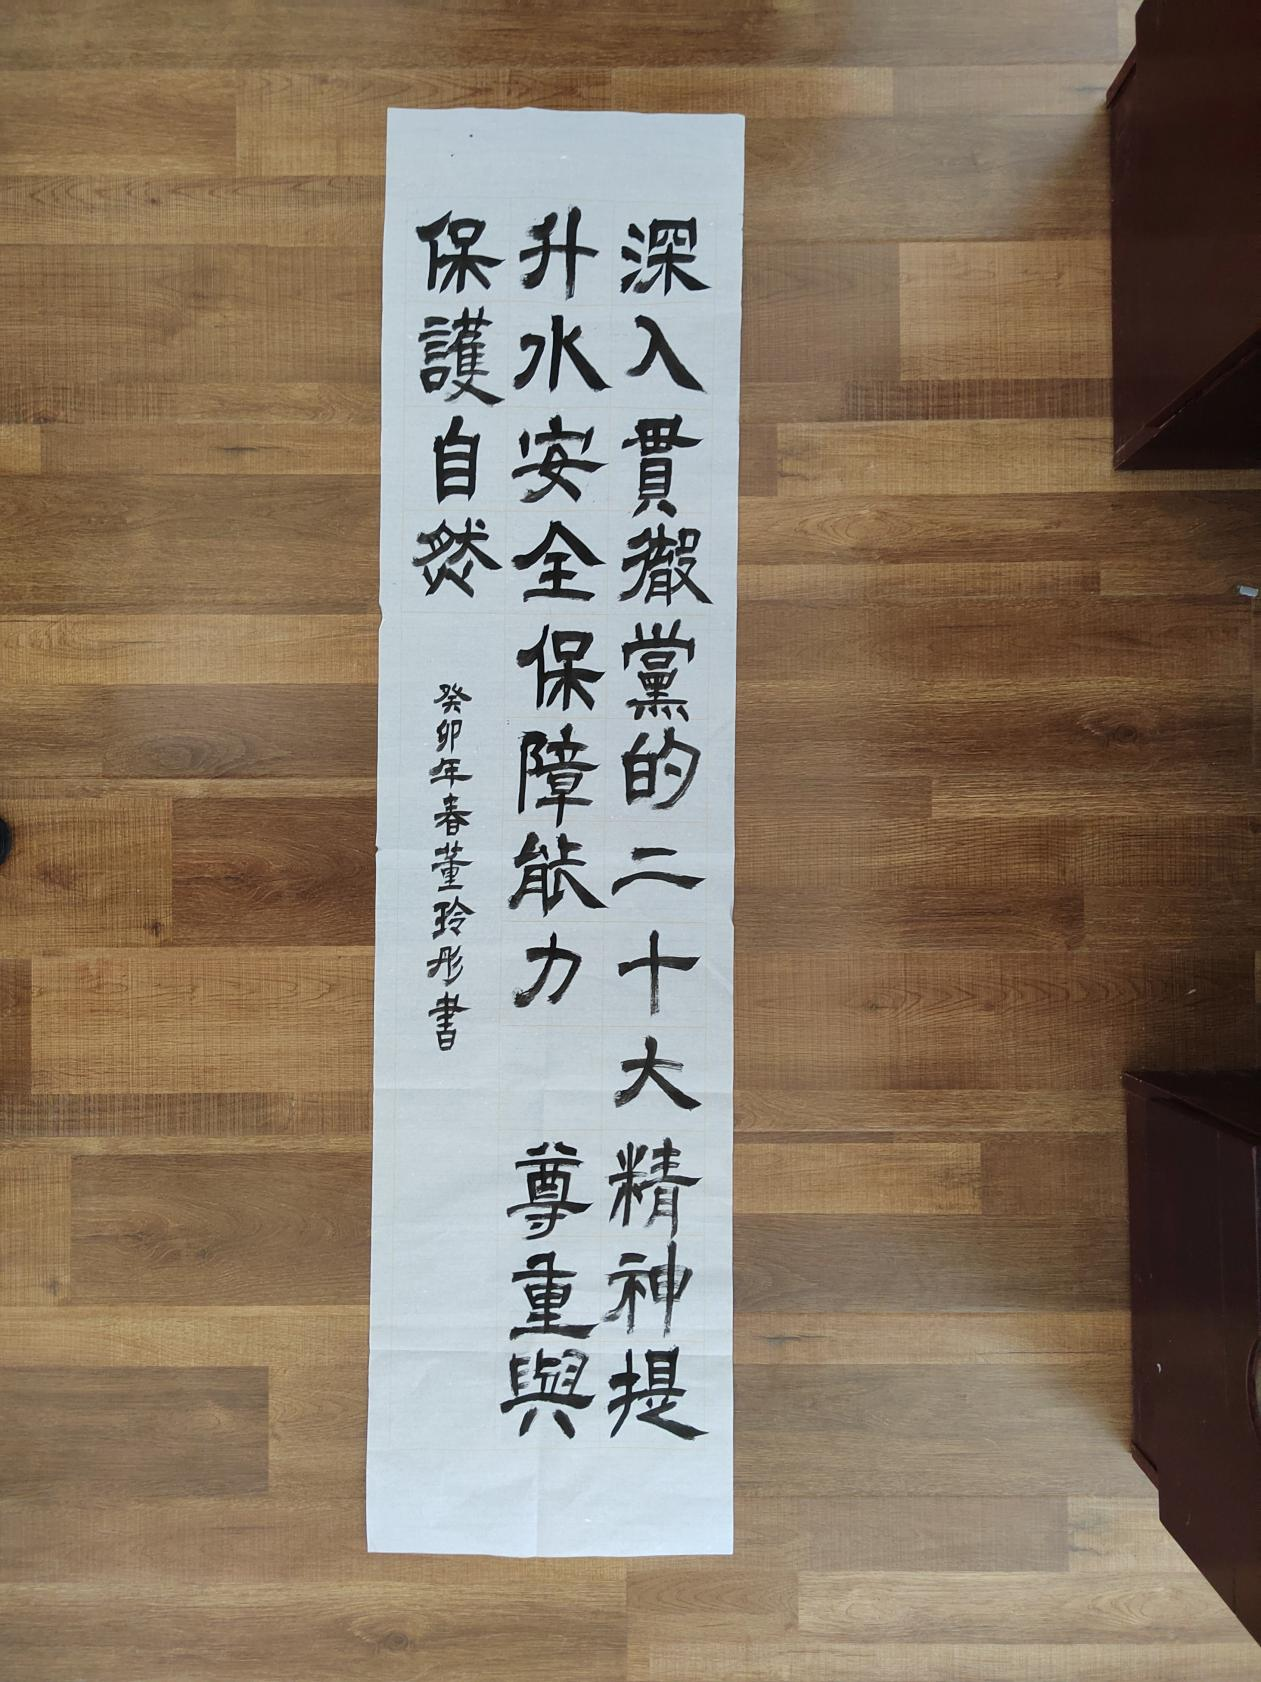 深入貫徹黨的二十大精神提
升水安全保障能力 尊重與
保護自然
癸卯年春董玲彤書